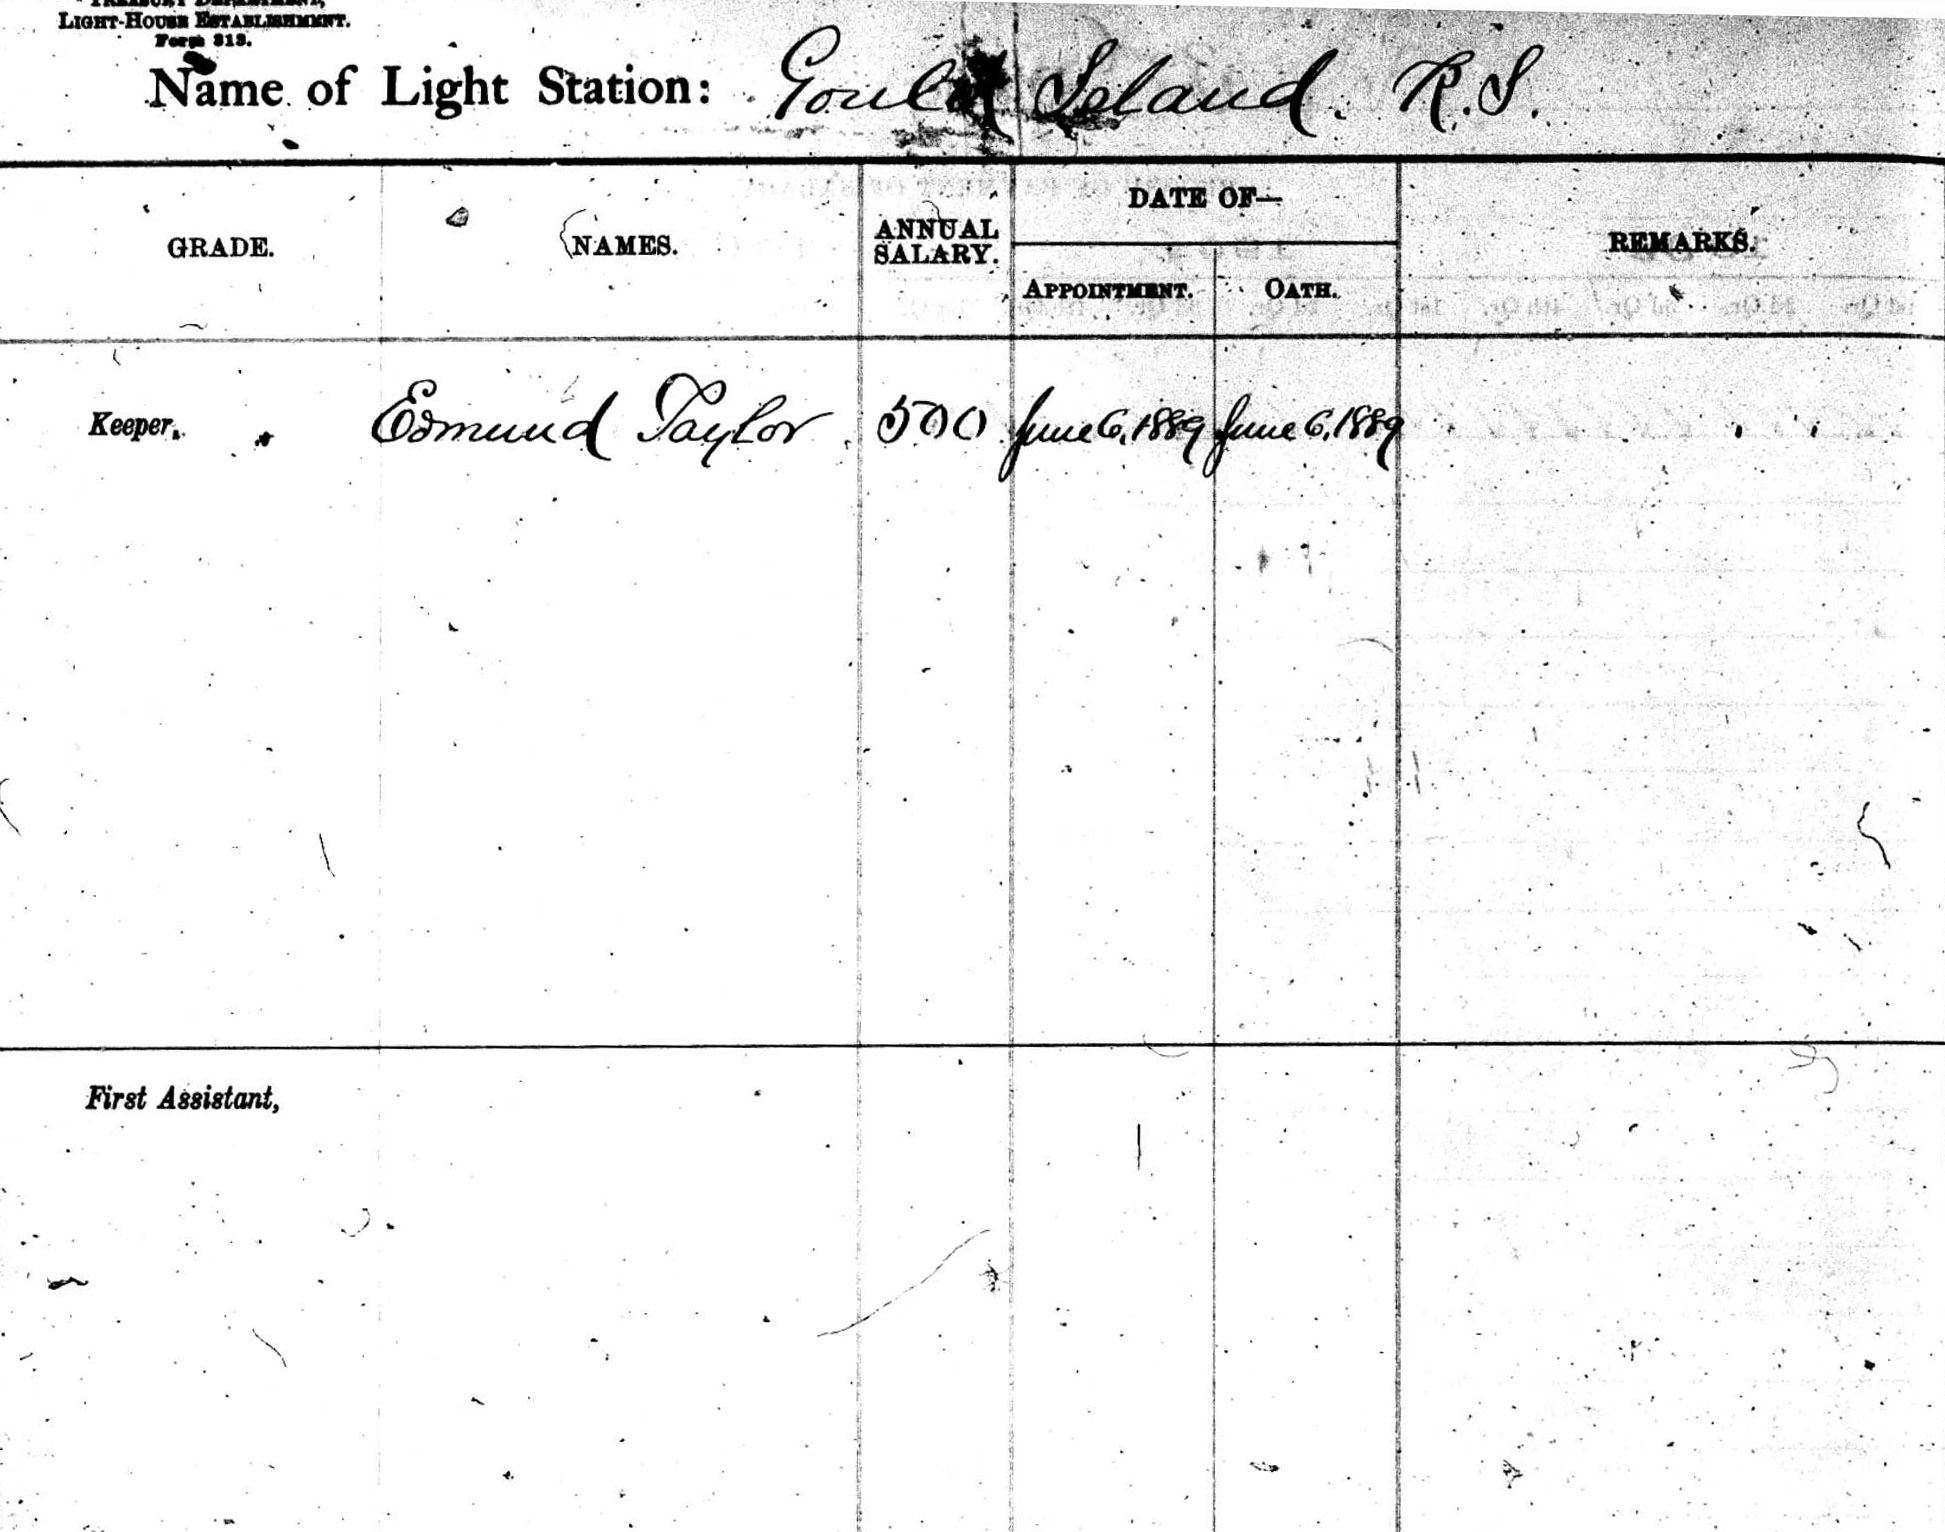 TREASURY DEPARTMENT,
LIGHT-HOUSE ESTABLISHMENT.
Form 313.
Name of Light Station: Gould Island R.I.
GRADE. NAMES. ANNUAL SALARY. DATE OF— REMARKS.
APPOINTMENT. OATH.
Keeper, Edmund Taylor 500 June 6, 1889 June 6, 1889
First Assistant,